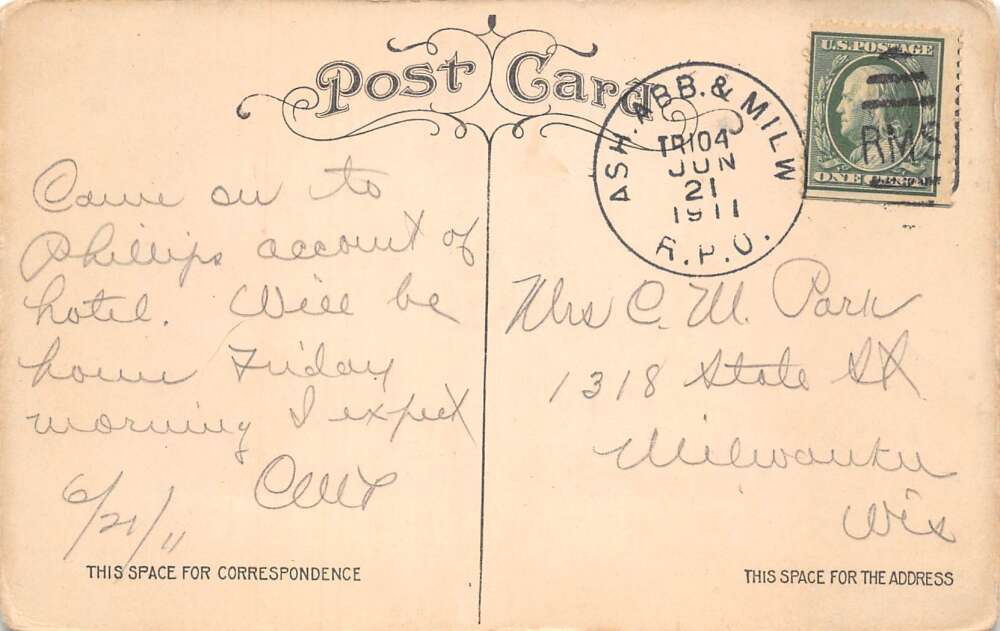 Post Card
ASH. ABB. & MILW
TR104
JUN
21
1911
R.P.O.
U.S. POSTAGE
RMS
ONE CENT
Came on to
Phillips account of
hotel. Will be
home Friday
morning I expect
CMP
6/21/11
THIS SPACE FOR CORRESPONDENCE
Mrs C. M. Park
1318 State St
Milwaukee
Wis
THIS SPACE FOR THE ADDRESS